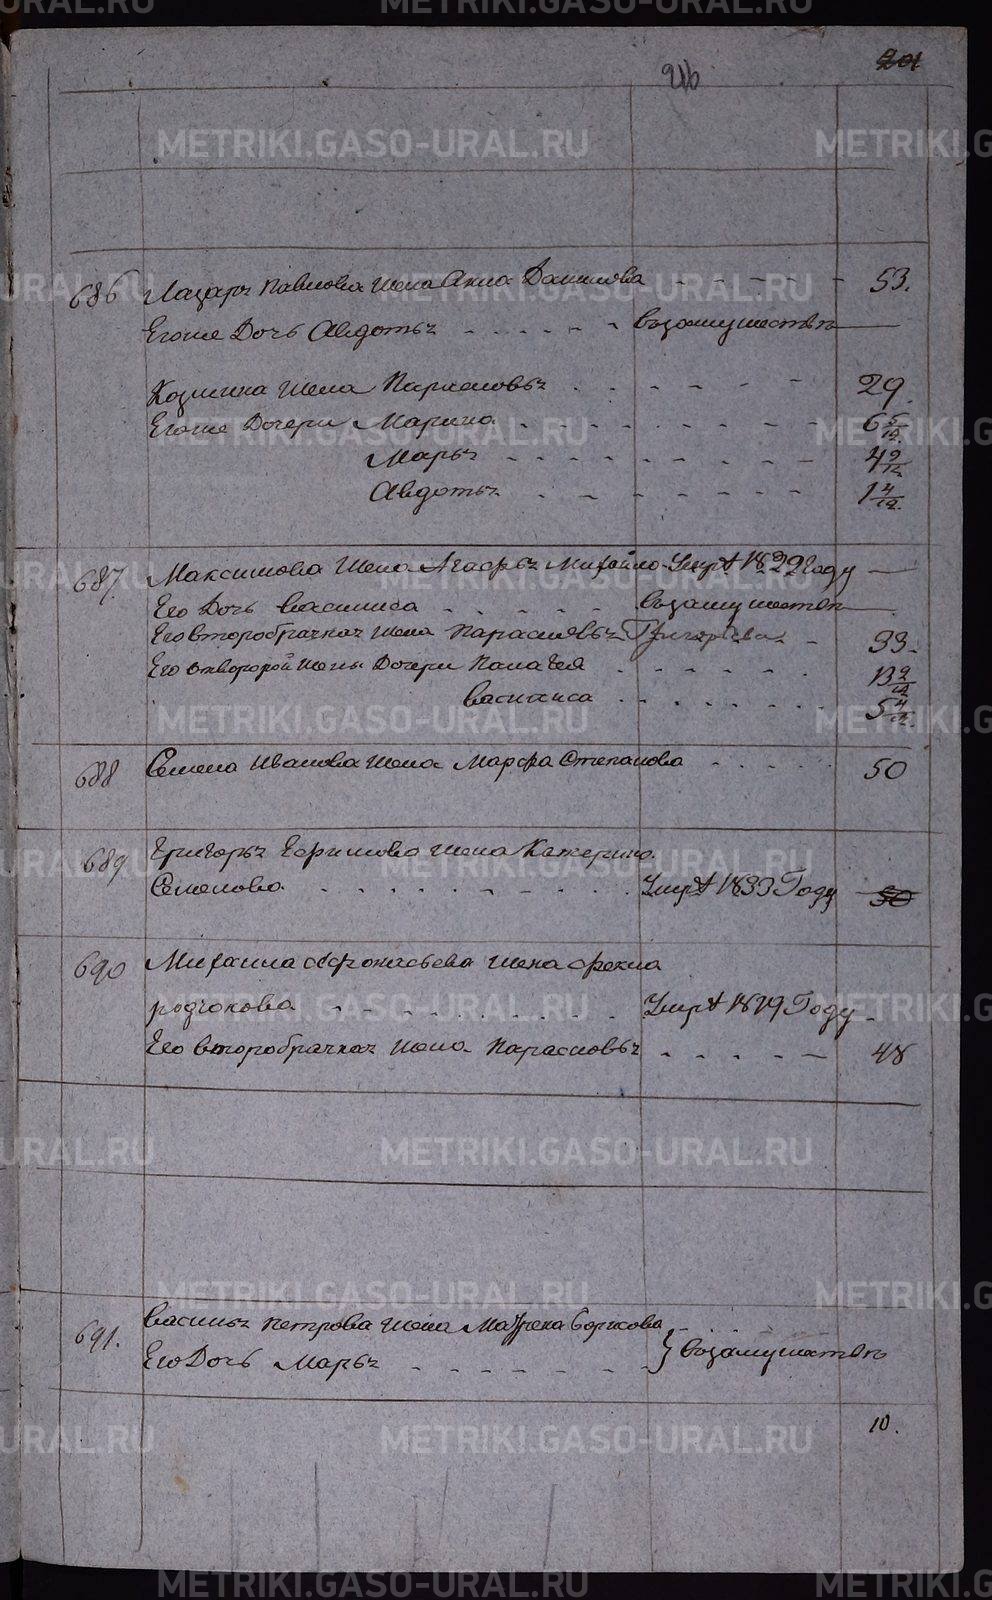 201
216
686 Лазаря Павлова жена Анна Данилова - - - - - 53.
Егоже Дочь Авдотья - - - - - взамужествѣ
Козмина жена Парасковья - - - - - 29.
Егоже Дочери Марина - - - - - 6 5/12.
Марья - - - - - 4 9/12
Авдотья - - - - - 1 4/12.
687. Максимова жена Агафья Михайло Умрѣ 1822 году
Его Дочь Василиса - - - - - взамужествѣ
Его второбрачная жена Парасковья Григорьева - 33.
Его отвторой жены Дочери Палагея - - - - - 13 9/12
Василиса - - - - - 5 4/12.
688 Семена Иванова жена Марфа Степанова - - - - - 50
689. Григорья Ефимова жена Катерина
Семенова - - - - - Умрѣ 1833 Году 50
690 Михаила Афонасьева жена Фекла
родионова - - - - - Умрѣ 1829 Году
Его второбрачная жена Парасковья - - - - - 48
691. Василья Петрова жена Матрена Борисова
Его Дочь Марья - - - - - } взамужествѣ
10.
METRIKI.GASO-URAL.RU